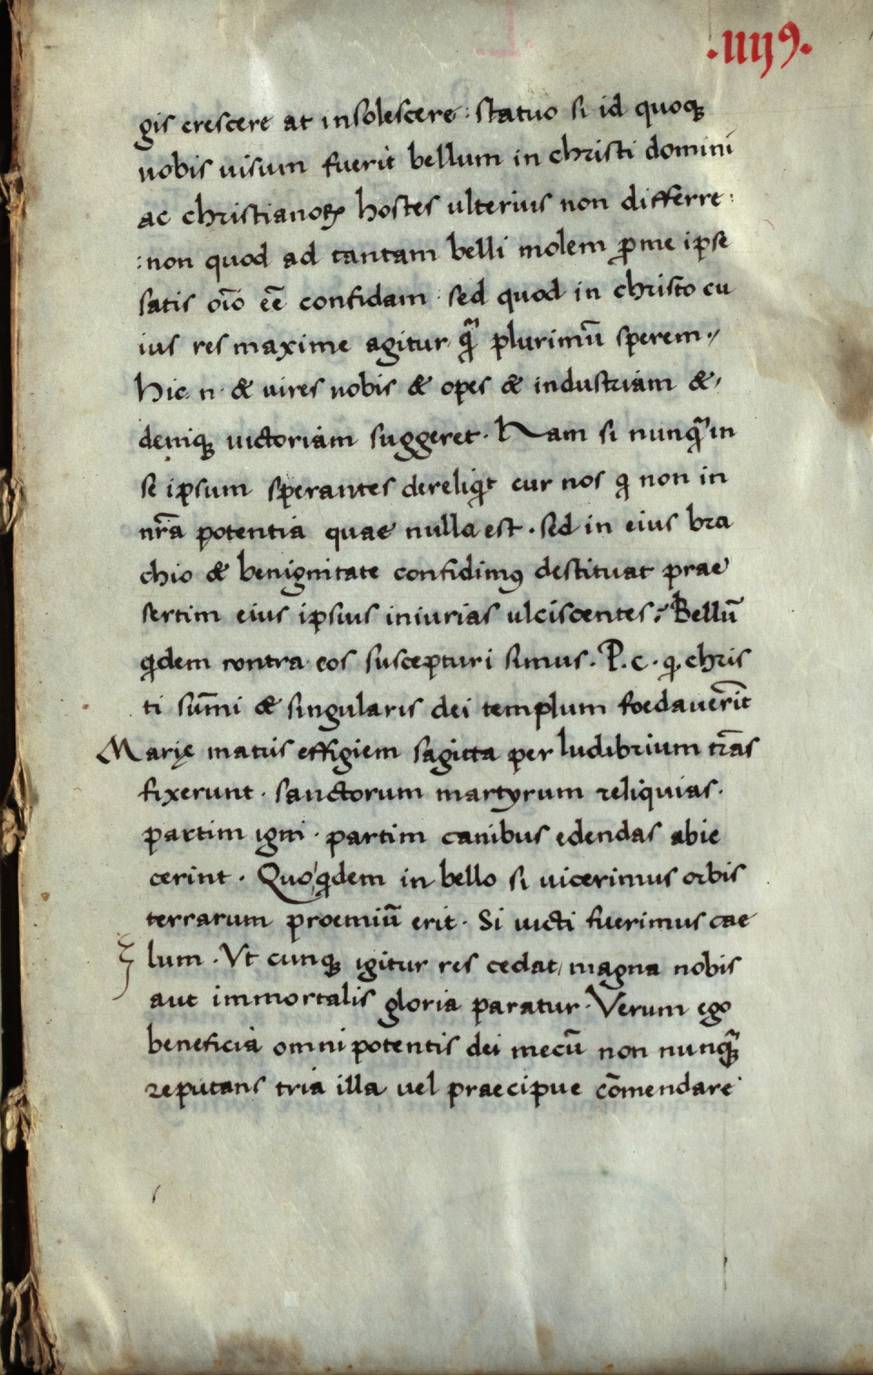 .iiij9.
gis crescere at insolescere: statuo si id quoqꝫ
uobis uisum fuerit bellum in christi domini
ac christianoꝝ hostes ulterius non differre:
:non quod ad tantam belli molem ꝑ me ipse
satis oīo eē confidam · sed quod in christo cu
ius res maxime agitur ꝙ̄ plurimū sperem ·/
Hic n· & uires nobis & opes & industriam &
deniqꝫ uictoriam suggeret · Nam si nunꝙ̄ in
se ipsum sperantes dereliqͥt cur nos q non in
nr̄a potentia quae nulla est · sed in eius bra
chio & benignitate confidimꝯ destituat prae
sertim eius ipsius iniurias ulciscentes;· Bellū
qͥdem contra eos suscepturi simus. P. c. qͥ. chris
ti sūmi & singularis dei templum foedauer̄it
Marię matris effigiem sagitta per ludibrium tr̄as
fixerunt · sanctorum martyrum reliquias ·
partim igni · partim canibus edendas abie
cerint · Quo qͥdem in bello si uicerimus orbis
terrarum proemiū erit · Si uicti fuerimus cae
lum · Vt cunqꝫ igitur res cedat, magna nobis
aut immortalis gloria paratur · Verum ego
beneficia omnipotentis dei mecū non nunꝙ̄
reputans tria illa uel praecipue cōmendare